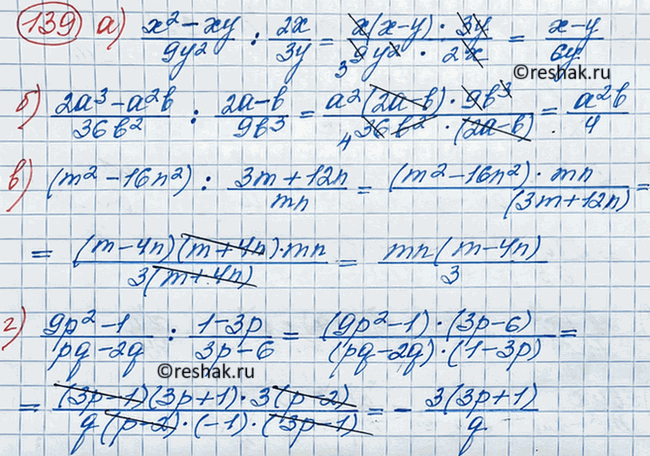 139 а) (x² - xy)/(9y²) : 2x/(3y) = (x(x-y) · 3y)/(9y² · 2x) 3 = (x-y)/(6y)
©reshak.ru
б) (2a³ - a²b)/(36b²) : (2a-b)/(9b³) = (a²(2a-b) · 9b³)/(36b² · (2a-b)) 4 = a²b/4
в) (m² - 16n²) : (3m + 12n)/(mn) = ((m² - 16n²) · mn)/(3m + 12n) =
= ((m-4n)(m+4n) · mn)/(3(m+4n)) = (mn(m-4n))/3
г) (9p² - 1)/(pq - 2q) : (1-3p)/(3p-6) = ((9p² - 1) · (3p-6))/((pq-2q) · (1-3p)) =
©reshak.ru
= ((3p-1)(3p+1) · 3(p-2))/(q(p-2) · (-1) · (3p-1)) = - (3(3p+1))/q